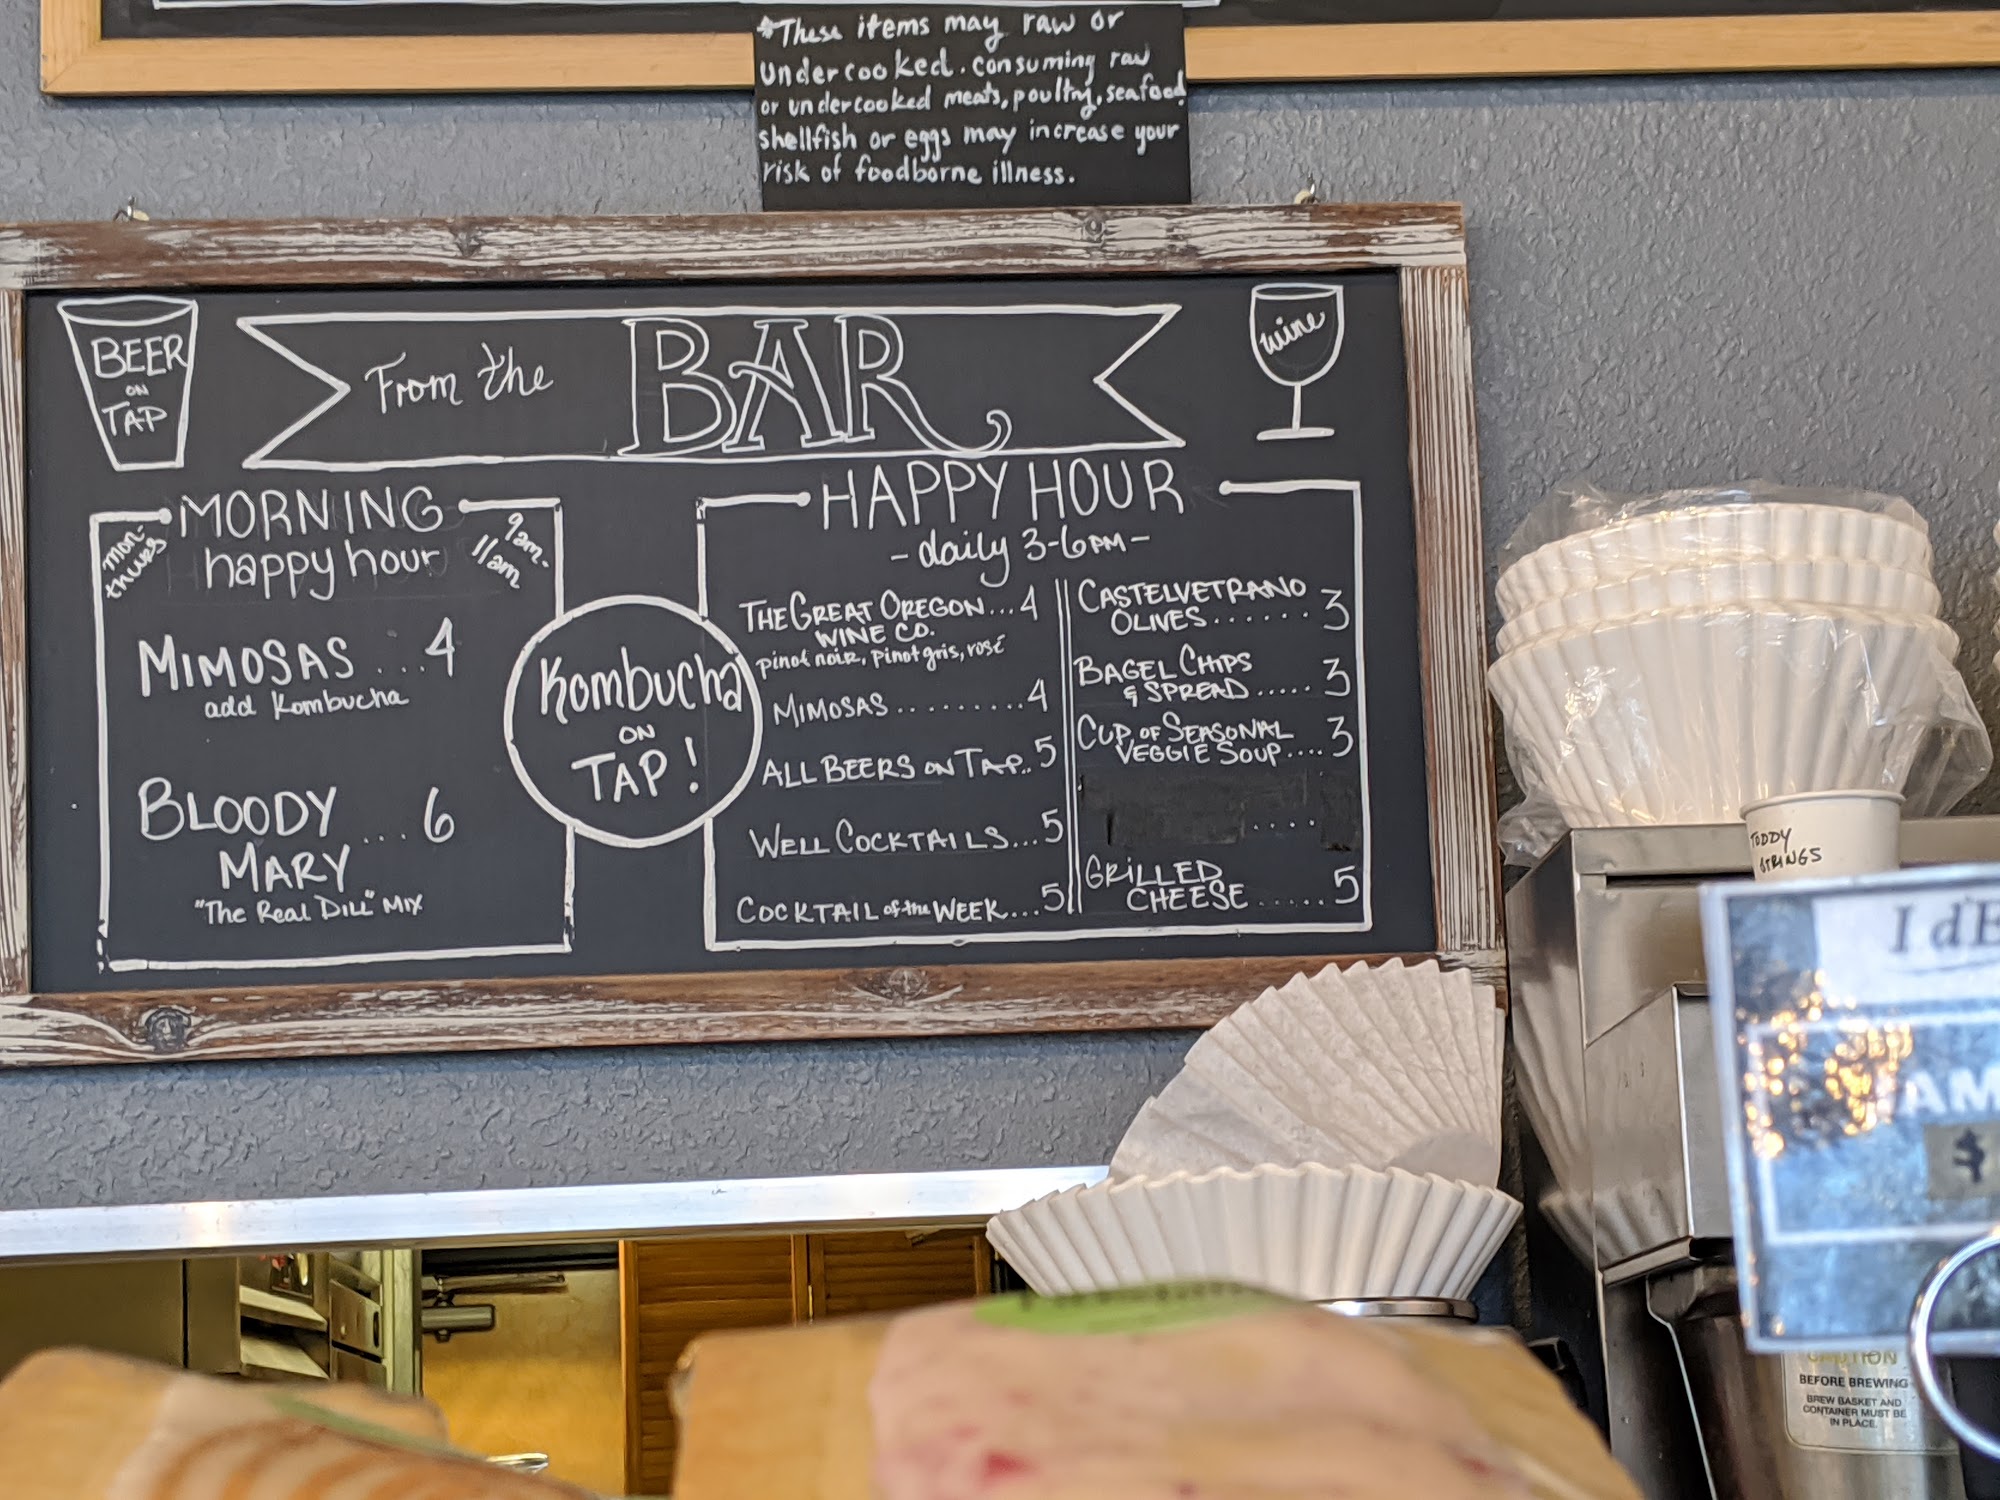 *These items may raw or
undercooked. consuming raw
or undercooked meats, poultry, seafood
shellfish or eggs may increase your
risk of foodborne illness.
BEER
ON
TAP
From the BAR
wine
MORNING
happy hour
mon-
thurs
9am-
11am
MIMOSAS ...4
add Kombucha
BLOODY ... 6
MARY
"The Real Dill" MIX
Kombucha
ON
TAP!
HAPPY HOUR
-daily 3-6PM-
THE GREAT OREGON...4
WINE CO.
pinot noir, pinot gris, rosé
MIMOSAS.........4
ALL BEERS ON TAP..5
WELL COCKTAILS...5
COCKTAIL of the WEEK...5
CASTELVETRANO
OLIVES......3
BAGEL CHIPS
& SPREAD.....3
CUP OF SEASONAL
VEGGIE SOUP....3
....
GRILLED
CHEESE.....5
TODDY
STRINGS
AM
$
CAUTION
BEFORE BREWING
BREW BASKET AND
CONTAINER MUST BE
IN PLACE.